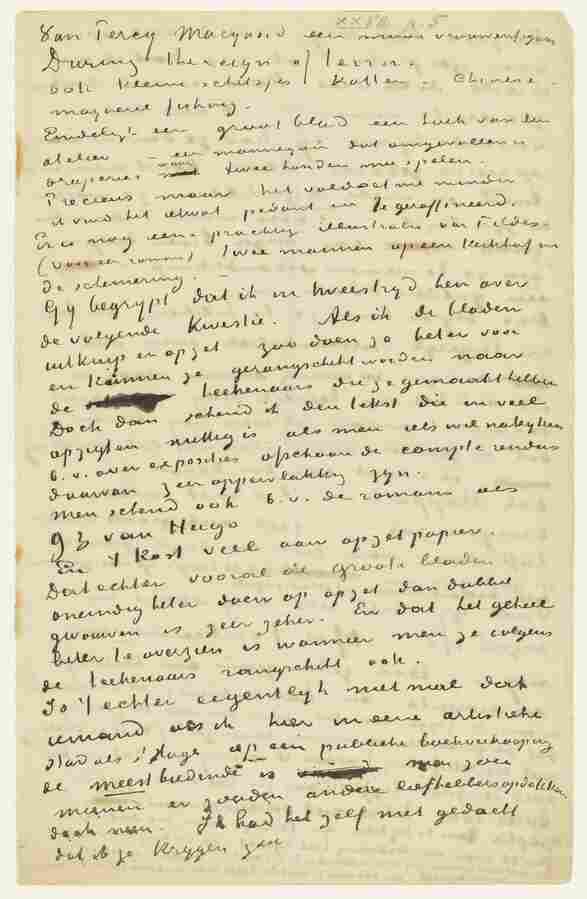 XXVII p. 5
Van Percy Macquoid een mooie vrouwenfiguur
During the reign of terror.
ook kleine schetsjes Katten – Chineze –
Eindelyk een groot blad een hoek van een
atelier – een mannequin dat omgevallen is
draperies waar twee honden mee spelen.
Precieus maar het voldoet me minder
ik vind het ietwat pedant en te geraffineerd.
Er is nog eene prachtig illustratie van Fildes
(voor een roman) Twee mannen op een Kerkhof in
de schemering. –
Gy begrypt dat ik in tweestryd ben over
de volgende Kwestie. Als ik de bladen
uitknip en opzet zoo doen ze beter voor
en kunnen ze gerangschikt worden naar
de teekenaars die ze gemaakt hebben
Doch dan schend ik den tekst die in veel
opzigten nuttig is als men iets wil nakyken
b.v. over exposities ofschoon de compte renders
daarvan zeer oppervlakkig zyn.
Men schend ook b.v. de romans als
93 van Hugo
En 't Kost veel aan opzetpapier.
Dat echter vooral de groote bladen
oneindig beter doen op opzet dan dubbel
gevouwen is zeer zeker. En dat het geheel
beter te overzien is wanneer men ze volgens
de teekenaars rangschikt ook.
Is 't echter eegentlyk niet mal dat
iemand als ik hier in eene artistieke
stad als s'Hage op een publieke boekverkooping
de meestbiedende is men zou
meenen er zouden andere liefhebbers opdokken
doch neen. Ik had het zelf niet gedacht
dat ik ze Krygen zou